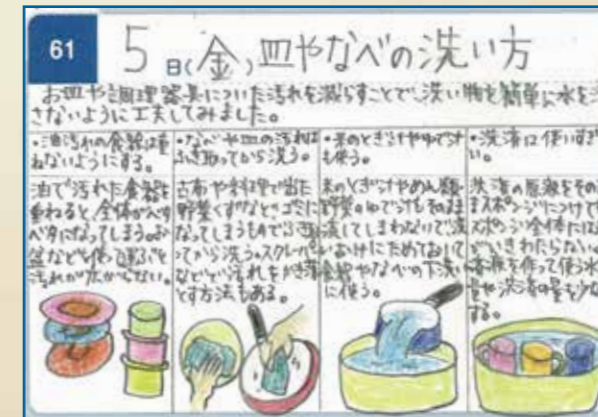 61
5日(金)皿やなべの洗い方
お皿や調理器具についた汚れを減らすことで、洗い物を簡単に水を汚
さないように工夫してみました。
・油汚れの食器は重
ねないようにする。
油で汚れた食器を
重ねると、全体がベタ
ベタになってしまう。お
盆などを使って運ぶと
汚れが広がらない。
・なべや皿の汚れは
ふき取ってから洗う。
古布や料理で出た
野菜くずなど、ゴミに
なってしまうものでふき取
ってから洗う。スクレーパー
などで汚れをかき落
とす方法もある。
・米のとぎ汁やゆで汁
も使う。
米のとぎ汁やめん類、
野菜のゆで汁もそのまま
流してしまわないで洗
いおけにためておいて
食器やなべの下洗い
に使う。
・洗渣は使いすぎ
い。
洗渣の原液をその
まスポンジにつけて
スポンジ全体には
がいきわたらない。
溶液を作って使う水
量や洗渣の量も少な
する。